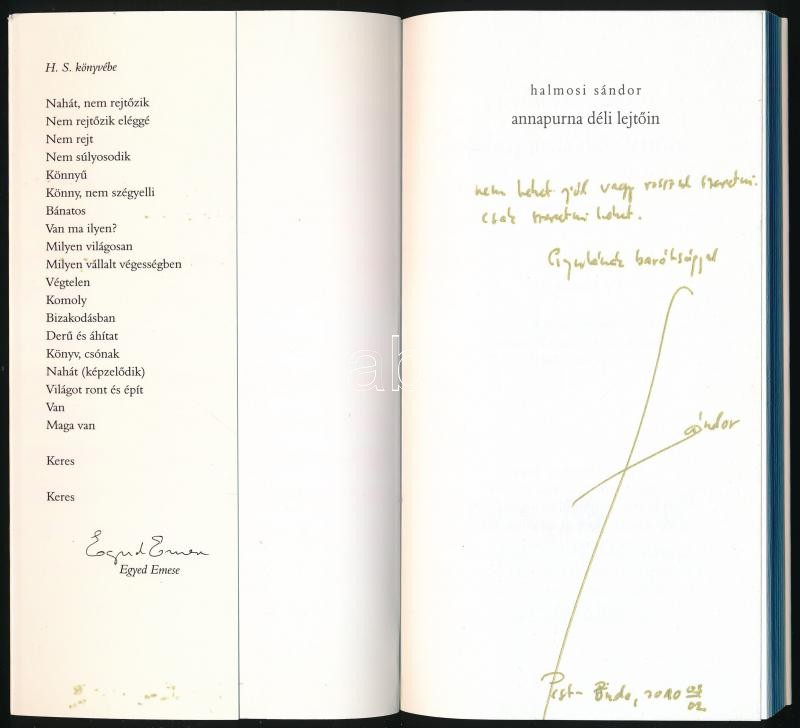 H. S. könyvébe
Nahát, nem rejtőzik
Nem rejtőzik eléggé
Nem rejt
Nem súlyosodik
Könnyű
Könny, nem szégyelli
Bánatos
Van ma ilyen?
Milyen világosan
Milyen vállalt végességben
Végtelen
Komoly
Bizakodásban
Derű és áhítat
Könyv, csónak
Nahát (képzelődik)
Világot ront és épít
Van
Maga van
Keres
Keres
Egyed Emese
Egyed Emese
halmosi sándor
annapurna déli lejtőin
nem lehet jól vagy rosszul szeretni.
csak szeretni lehet.
barátsággal
Sándor
Pest- 2010